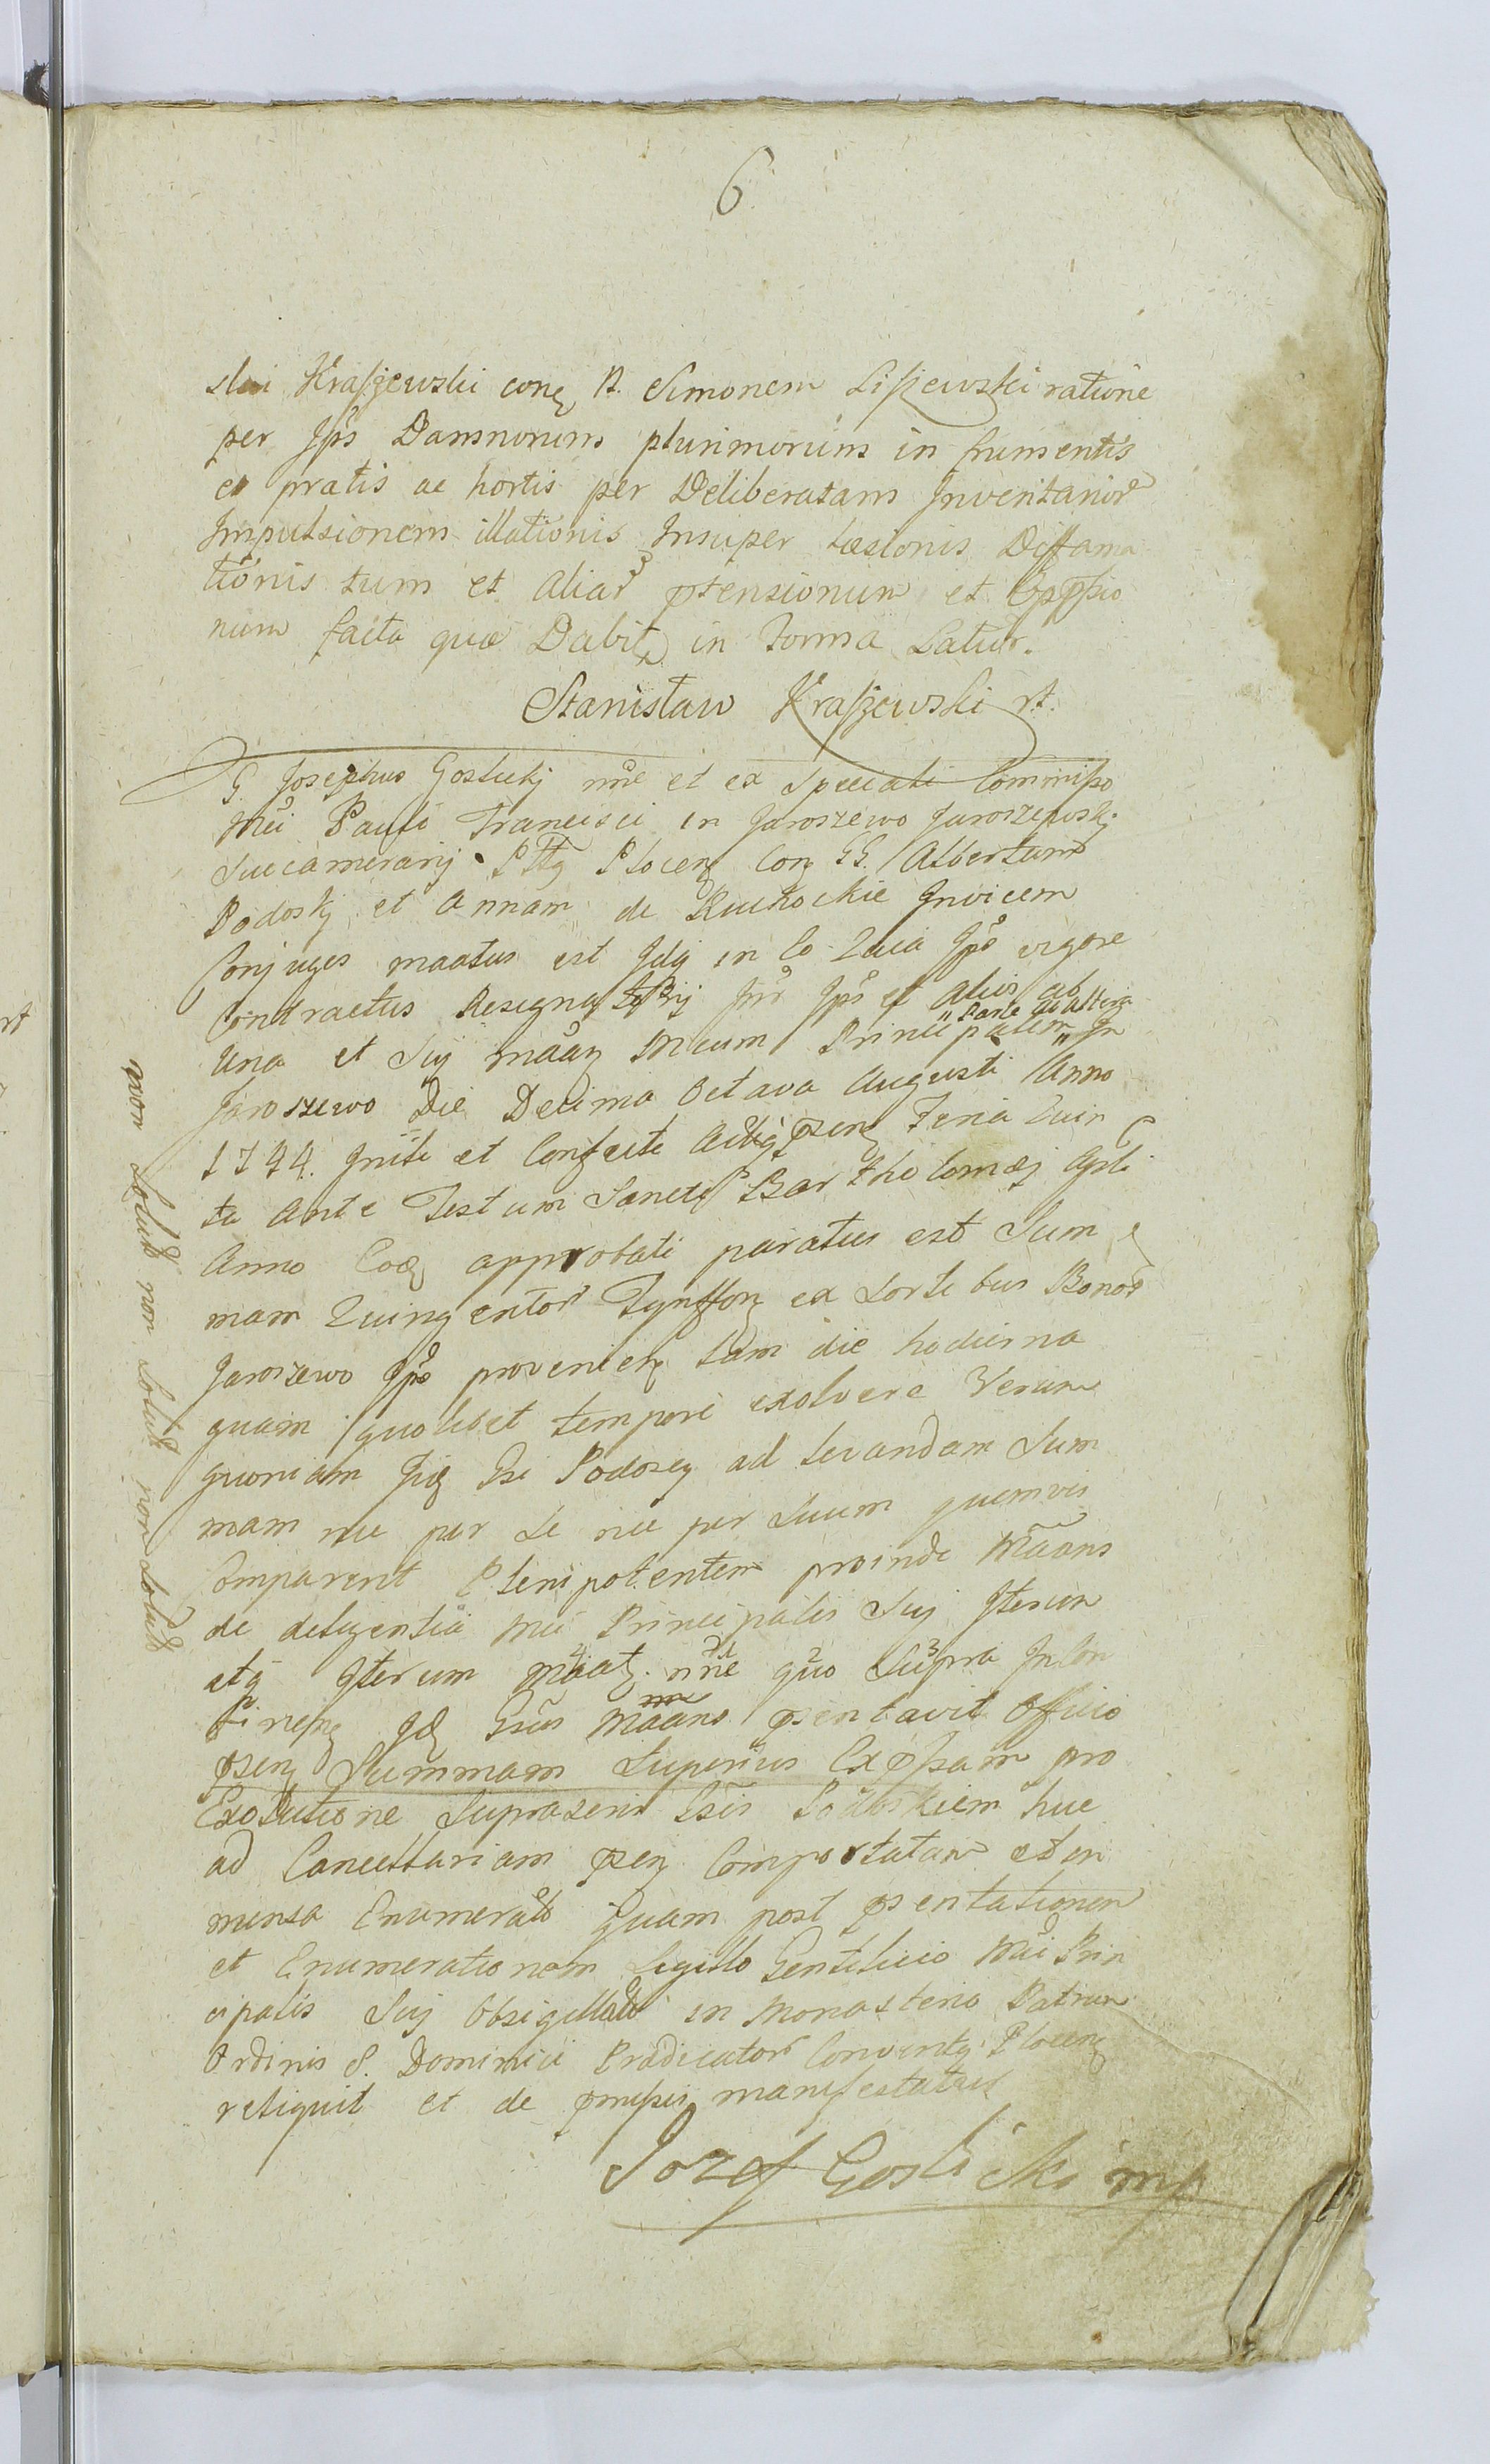 6
ski Kraszewski conq N. Simonem Liszewski ratione
per Jps Damnorum plurimorum in frumentis
et pratis ac hortis per Deliberatam Inventarior
Impulsionem illationis Insuper læsionis Diffama
tionis tum et aliar ptensionum et Oppssio
num facta quæ Dabit in Forma Latius.
Stanisław Kraszewski rt.
G. Josephus Goslickj nne et ex Speciali Commisso
Mci Pauli Francisci in Jaroszewo Jaroszewskj
Succamerarij Plocen Con GG. Albertum
Podoskj et Annam de Invicem
Conjuges maatus est Idq in Co Quia Jps vigore
Contractus Resigna Jps et aliis ab
una et Suj Mcum Principalem Parte ab altera In
Jaroszewo Die Decima Octava Augusti Anno
1744. Initi et Confecti psen Feria Quin
ta Ante Festum Sancti Bartholomæj Apli
Anno Eoq approbati paratus est Sum
mam Quingentor Tynffon ex Sortibus Bonor
Jaroszewo Jps provenien tam die hodierna
quam quolibet tempore exolvere Verum
quoniam Jidq Gsi Podoscy ad levandam Sum
mam nec per Se nec per Suum quemvis
Comparent Plenipotentem proinde Maans
de deligentia Mci Principalis Suj Iterum
atq Iterum maat. nne quo Supra In Con
tinen Idq Gsus Maans psentavit Officio
psen Summam Superius Expssam pro
Exolutione Suprascrip Gsis Podoskiem huc
ad Cancellariam psen Comportatam et in
mensa Enumerat quam post psentationem
et Enumerationem Sigillo Gentilicio Mci Prin
cipalis Suj Obsigillat in Monasterio Patrum
Ordinis S. Dominici Prædicator Conventq Plocen
reliquit et de pmissis manifestatus
Jozef Goslicki mp
non Solut non Solut non Solut